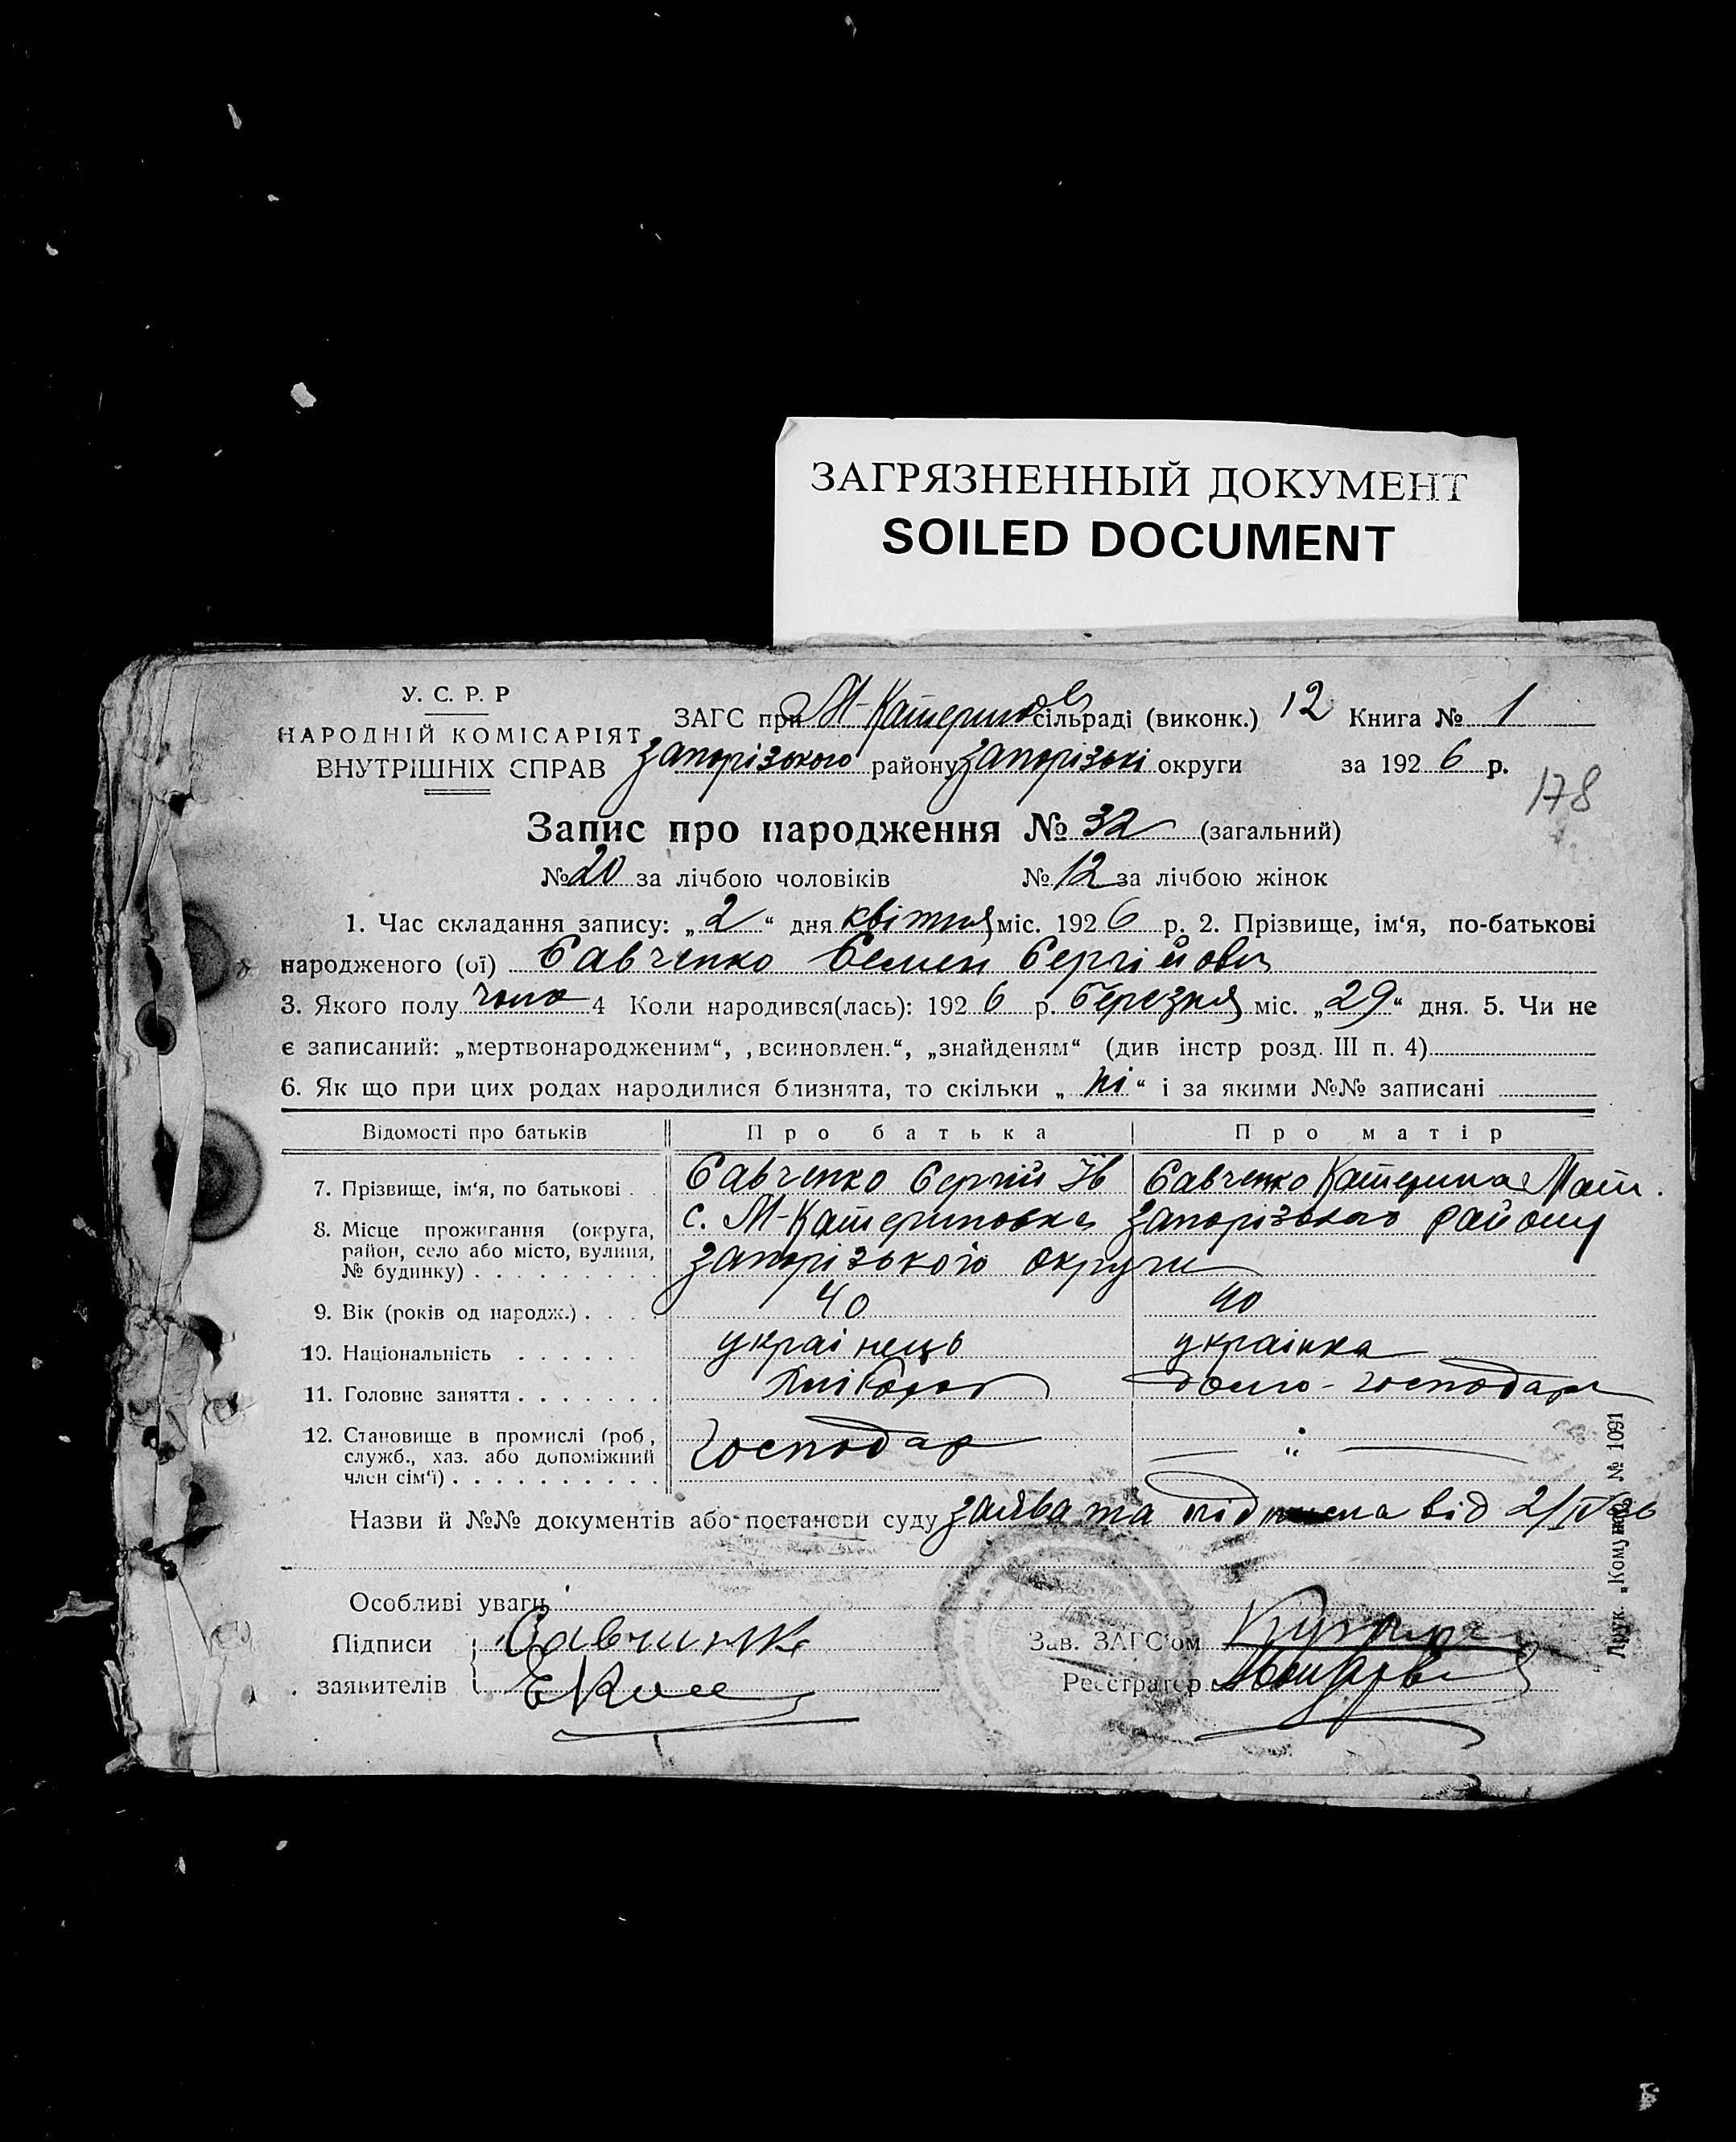 ЗАГРЯЗНЕННЫЙ ДОКУМЕНТ
SOILED DOCUMENT
У. С. Р. Р
НАРОДНІЙ КОМІСАРІЯТ
ВНУТРІШНІХ СПРАВ
ЗАГС при М-Катеринов сільраді (виконк.) 12 Книга № 1
Запорізького району Запорізькі округи за 1926 р.
178
Запис про народження № 32 (загальний)
№ 20 за лічбою чоловіків № 12 за лічбою жінок
1. Час складання запису: „2“ дня квітня міс. 1926 р. 2. Прізвище, ім‘я, по-батькові
народженого (ої) Савченко Семен Сергійович
3. Якого полу чоло 4 Коли народився(лась): 1926 р. березня міс. „29“ дня. 5. Чи не
є записаний: „мертвонародженим“, „всиновлен.“, „знайденям“ (див інстр розд. III п. 4)
6. Як що при цих родах народилися близнята, то скільки „ні“ і за якими №№ записані
Відомості про батьків Про батька Про матір
7. Прізвище, ім‘я, по батькові . Савченко Сергій Ів Савченко Катерина Мат.
8. Місце прожигання (округа, район, село або місто, вулиця, № будинку) с. М-Катериновка Запорізького району
Запорізького округи
9. Вік (років од народж.) 40 40
10. Національність украінець украінка
11. Головне заняття Хлібороб домо-господарк
12. Становище в промислі (роб., служб., хаз. або допоміжний член сім‘ї) Господар — „ —
Назви й №№ документів або постанови суду заява та підписка від 2/IV 26
Особливі уваги
Підписи заявителів Савчинк
Зав. ЗАГС‘ом
Реєстратор
Друк. „Комунар“ № 1091